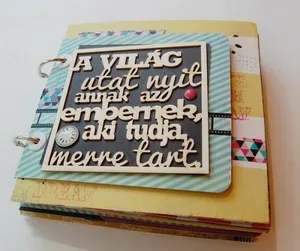 A VILÁG
utat nyit
annak az
embernek,
aki tudja,
merre tart.